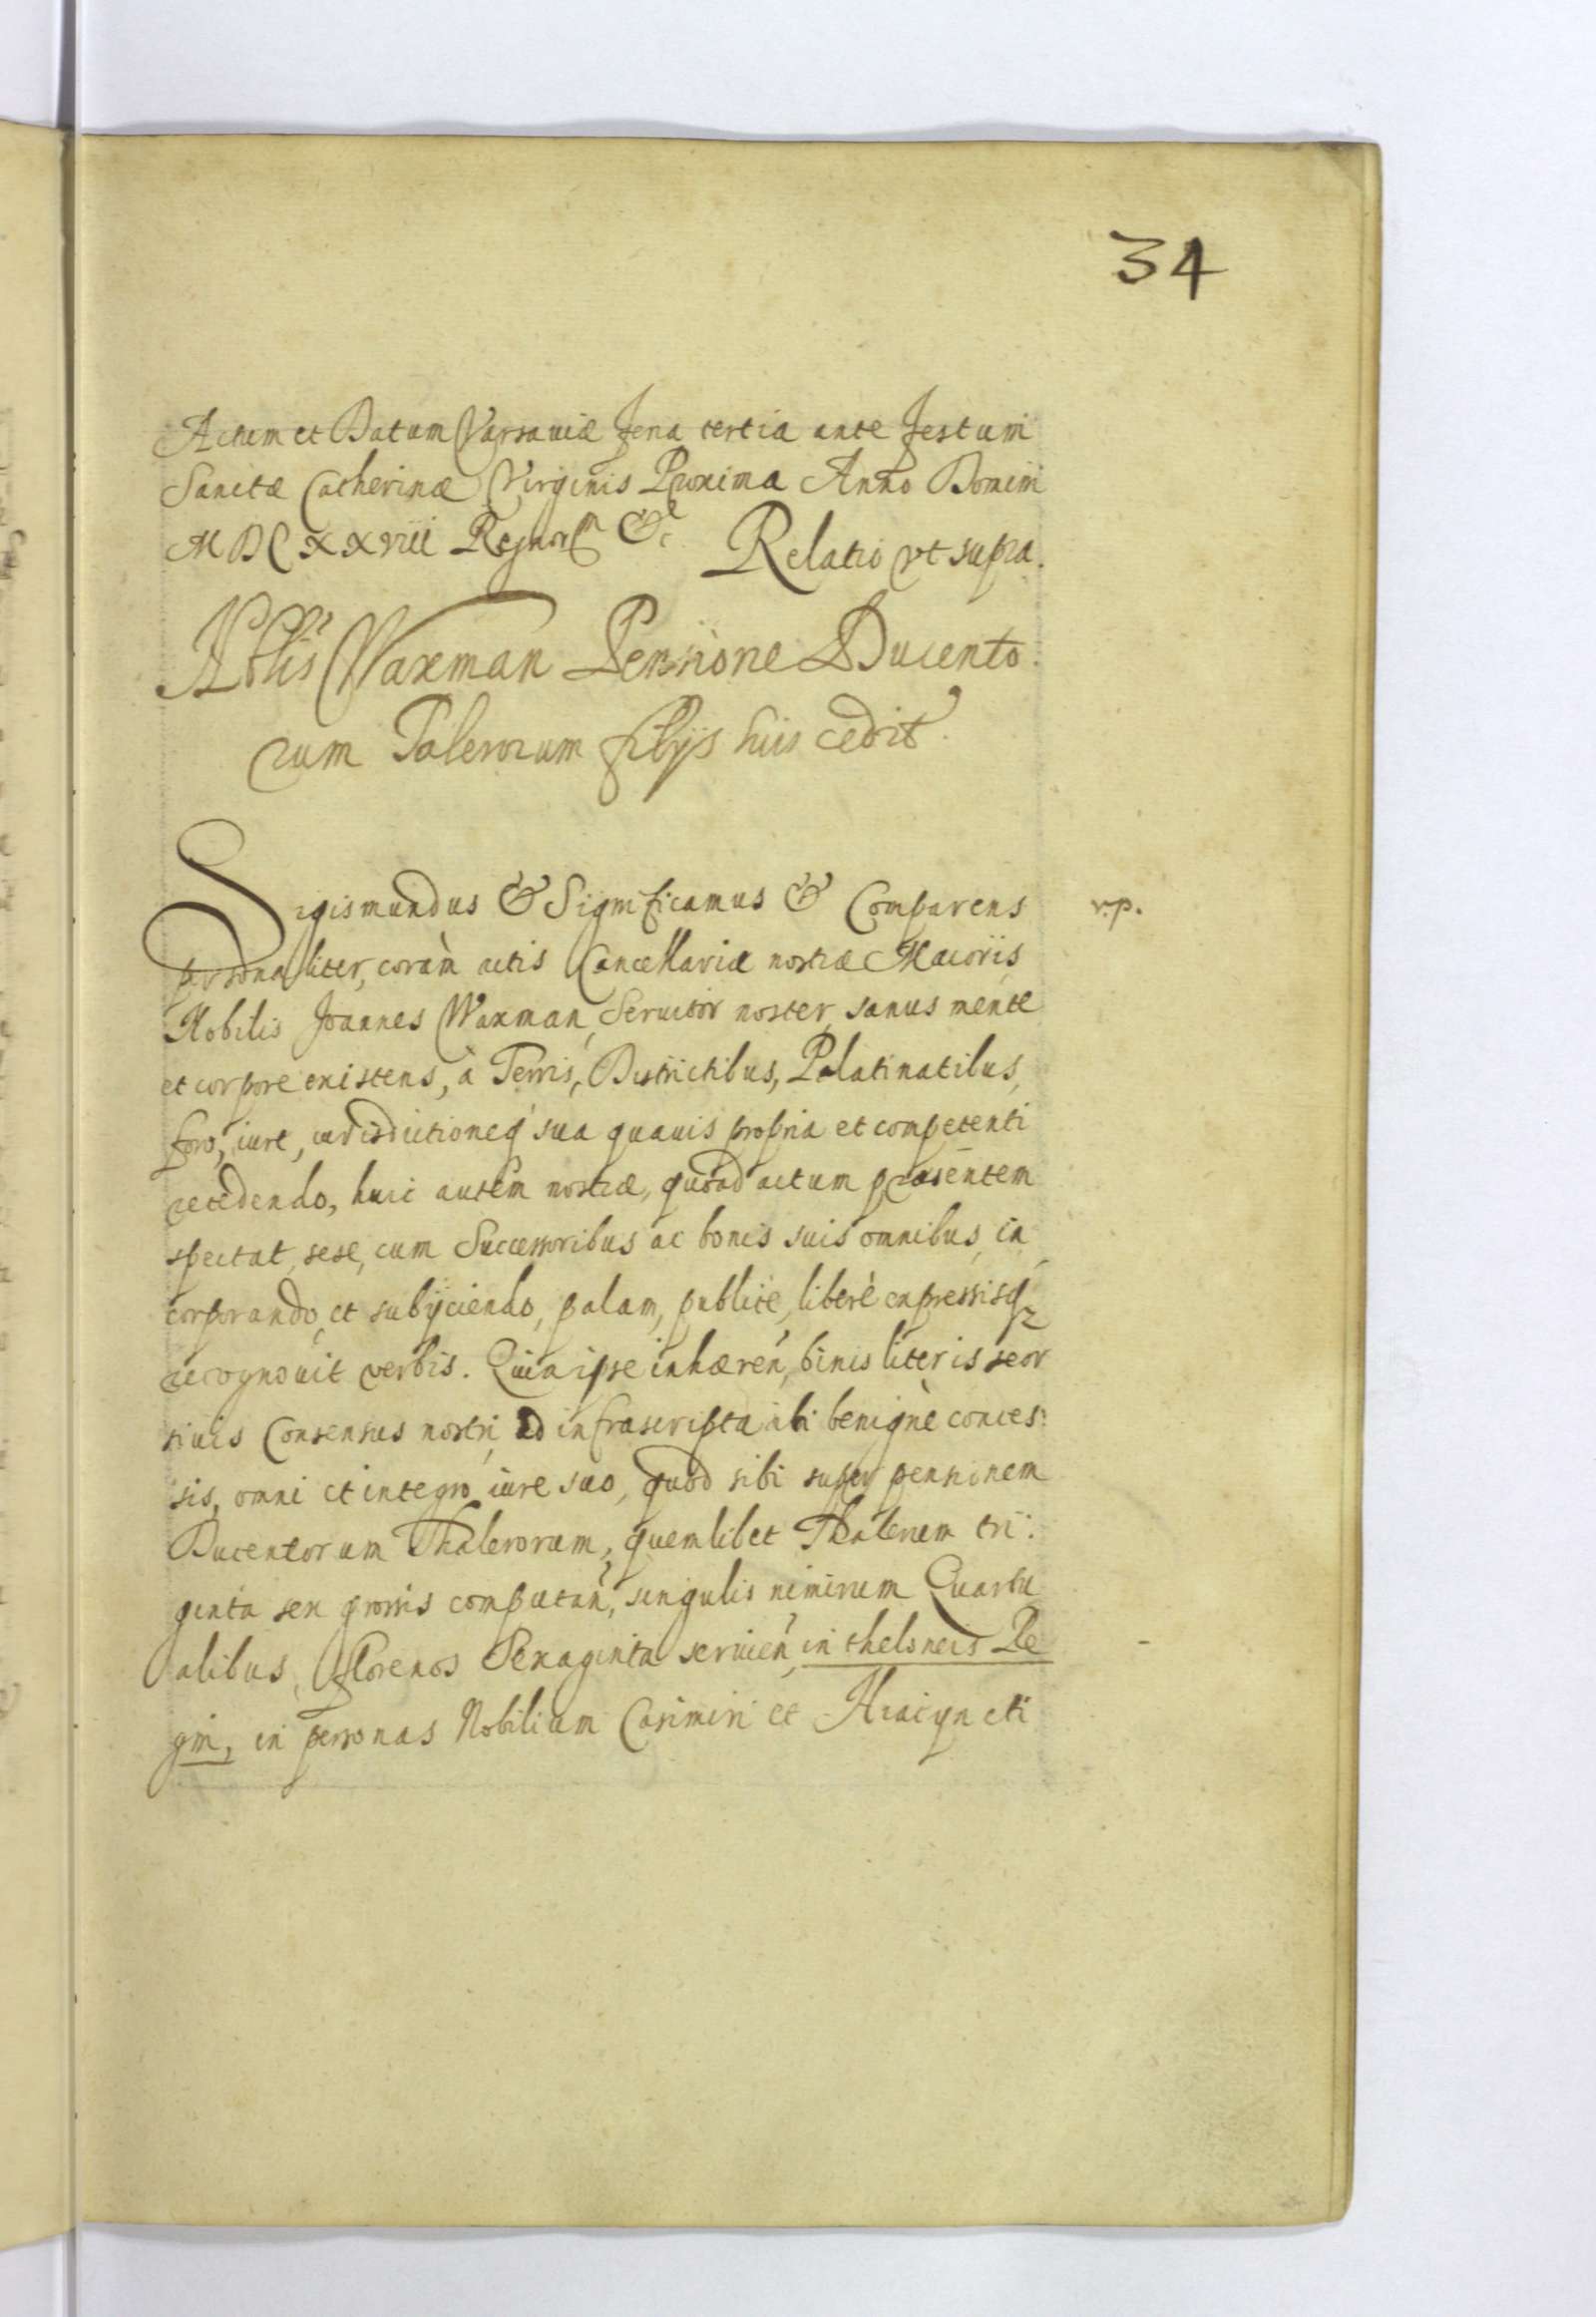 34
Actum et Datum Varsauiæ feria tertia ante festum
Sanctæ Catherinæ Virginis Proxima Anno Domini
MDCXXVIII Regnor &c Relatio vt supra.
Nblis Waxman Pensione Ducento
rum Talerorum filijs suis cedit.
Sigismundus & Significamus & Comparens
v.p.
personaliter, coràm actis Cancellariæ nostræ Maioris
Nobilis Joannes Waxman, Seruitor noster, sanus mente
et corpore existens, à Terris, Districtibus, Palatinatibus,
foro, iure, iurisdictioneq sua quauis propria et competenti
recedendo, huic autem nostræ, quoad actum præsentem
spectat, sese, cum Successoribus ac bonis suis omnibus, in
corporando, et subijciendo, palam, publicè, liberè expressisq
recognouit verbis. Quia ipse inhæren, binis literis seor
siuis Consensus nostri, ad infrascripta sibi benignè conces
sis, omni et integro iure suo, quod sibi super pensinem
Ducentorum Thalerorum, quemlibet Thalerum tri
ginta sex grossis computan, singulis nimirum Quartu
alibus, florenos Sexaginta seruien, in theloneis Re
gni, in personas Nobilium Casimiri et Hiacyncti